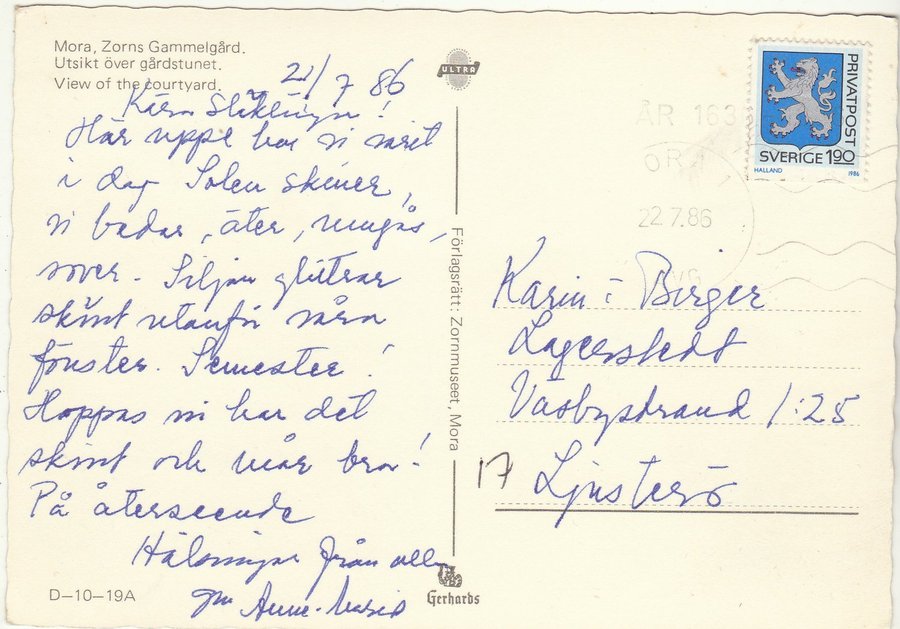 Mora, Zorns Gammelgård.
Utsikt över gårdstunet.
View of the courtyard.
21/7 86
Kära Släktingar!
Här uppe har vi varit
i dag Solen skiner,
vi badar, äter, umgås,
sover. Siljan glittrar
skönt utanför våra
fönster. Semester!
Hoppas ni har det
skönt och mår bra!
På återseende
Hälsningar från alla
gm Anne-Marie
D-10-19A
ULTRA
Förlagsrätt: Zornmuseet, Mora
Gerhards
PRIVATPOST
SVERIGE 1.90
HALLAND 1986
ÅR 163
22.7.86
Karin o Birger
Lagerstedt
Väsbystrand 1:25
17 Ljusterö